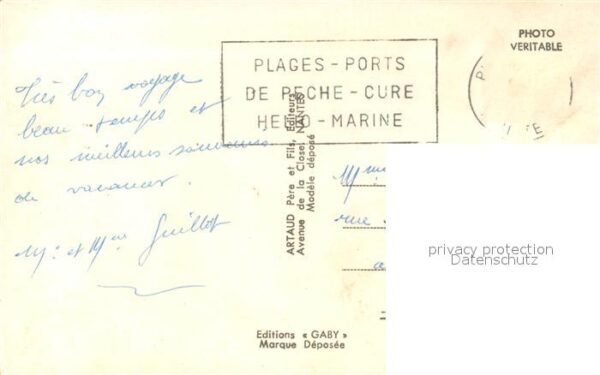 Très bon voyage
beau temps et
nos meilleurs souvenirs
de vacances.
Mr et Mme Guillot
PLAGES - PORTS
DE PECHE - CURE
HELIO - MARINE
PHOTO
VERITABLE
ARTAUD Père et Fils, Editeurs
Avenue de la Close, NANTES
Modèle déposé
Mme
rue
privacy protection
Datenschutz
Editions « GABY »
Marque Déposée